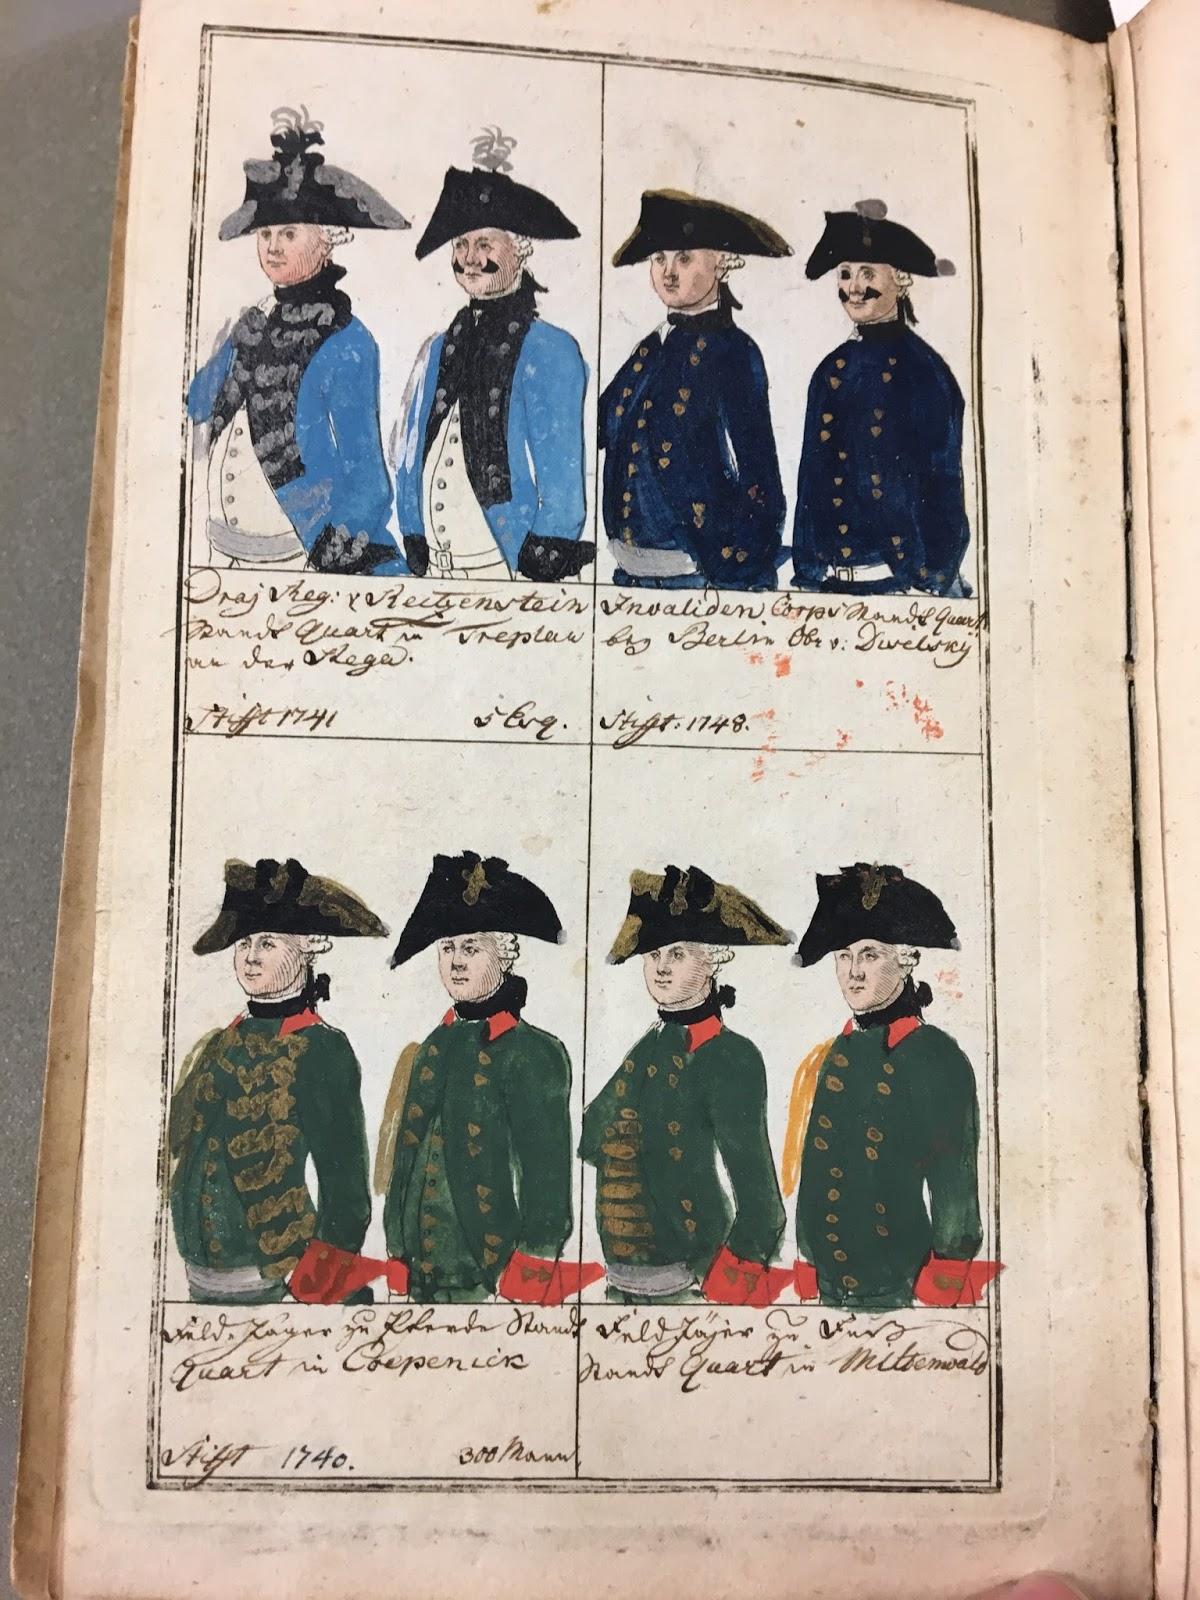 Drag Reg: v Reitzenstein
Stands Quart in Treptau
an der Rega.
Stifft 1741 5 Esq.
Invaliden Corps Stands Quart
bey Berlin Obr v: Diezelsky
Stifft: 1748.
Feld-Jäger zu Pferde Stands
Quart in Coepenick
Stifft 1740. 300 Mann.
Feld Jäger zu Fuß
Stands Quart in Mittenwald